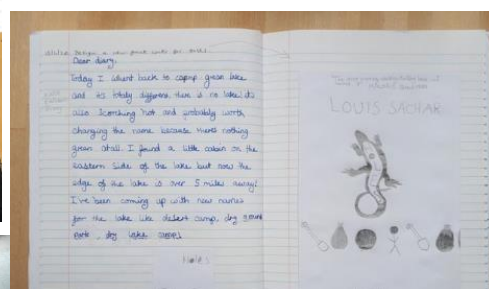 Design a new front cover for Holes.
Dear diary,
Today I went back to camp green lake
and its totaly different there is no lake! its
also scorching hot and probably worth
changing the name because theres nothing
green atall. I found a little cabin on the
eastern side of the lake but now the
edge of the lake is over 5 miles away!
I've been coming up with new names
for the lake like desert camp, dry ground
park, dry lake
Holes
LOUIS SACHAR